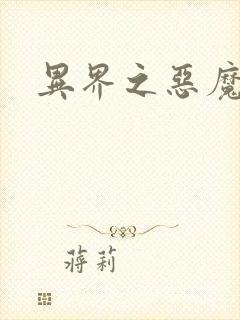 異界之惡魔
蔣莉